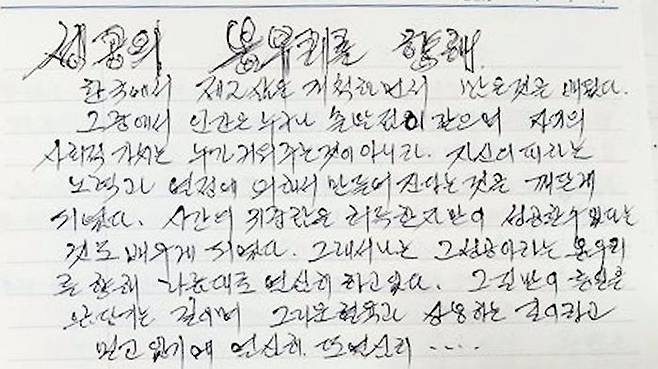 성공의 봉우리를 향해
한국에서 제2 삶을 개척하면서 많은것을 배웠다.
그중에서 인간은 누구나 출발점이 같으며 자기의
사회적 가치는 누가 키워주는것이 아니라. 자신의 피타는
노력과 열정에 의해서 만들어 진다는것을 깨닫게
되였다. 시간의 귀중함을 터득한자만이 성공할수 있다는
것도 배우게 되였다. 그래서 나는 그 성공이라는 봉우리
를 향해 나름대로 열심히 하고있다. 그길만이 통일을
앞당기는 길이며 그리운 혈육과 상봉하는 길이라고
믿고 있기에 열심히. 또 열심히 ....